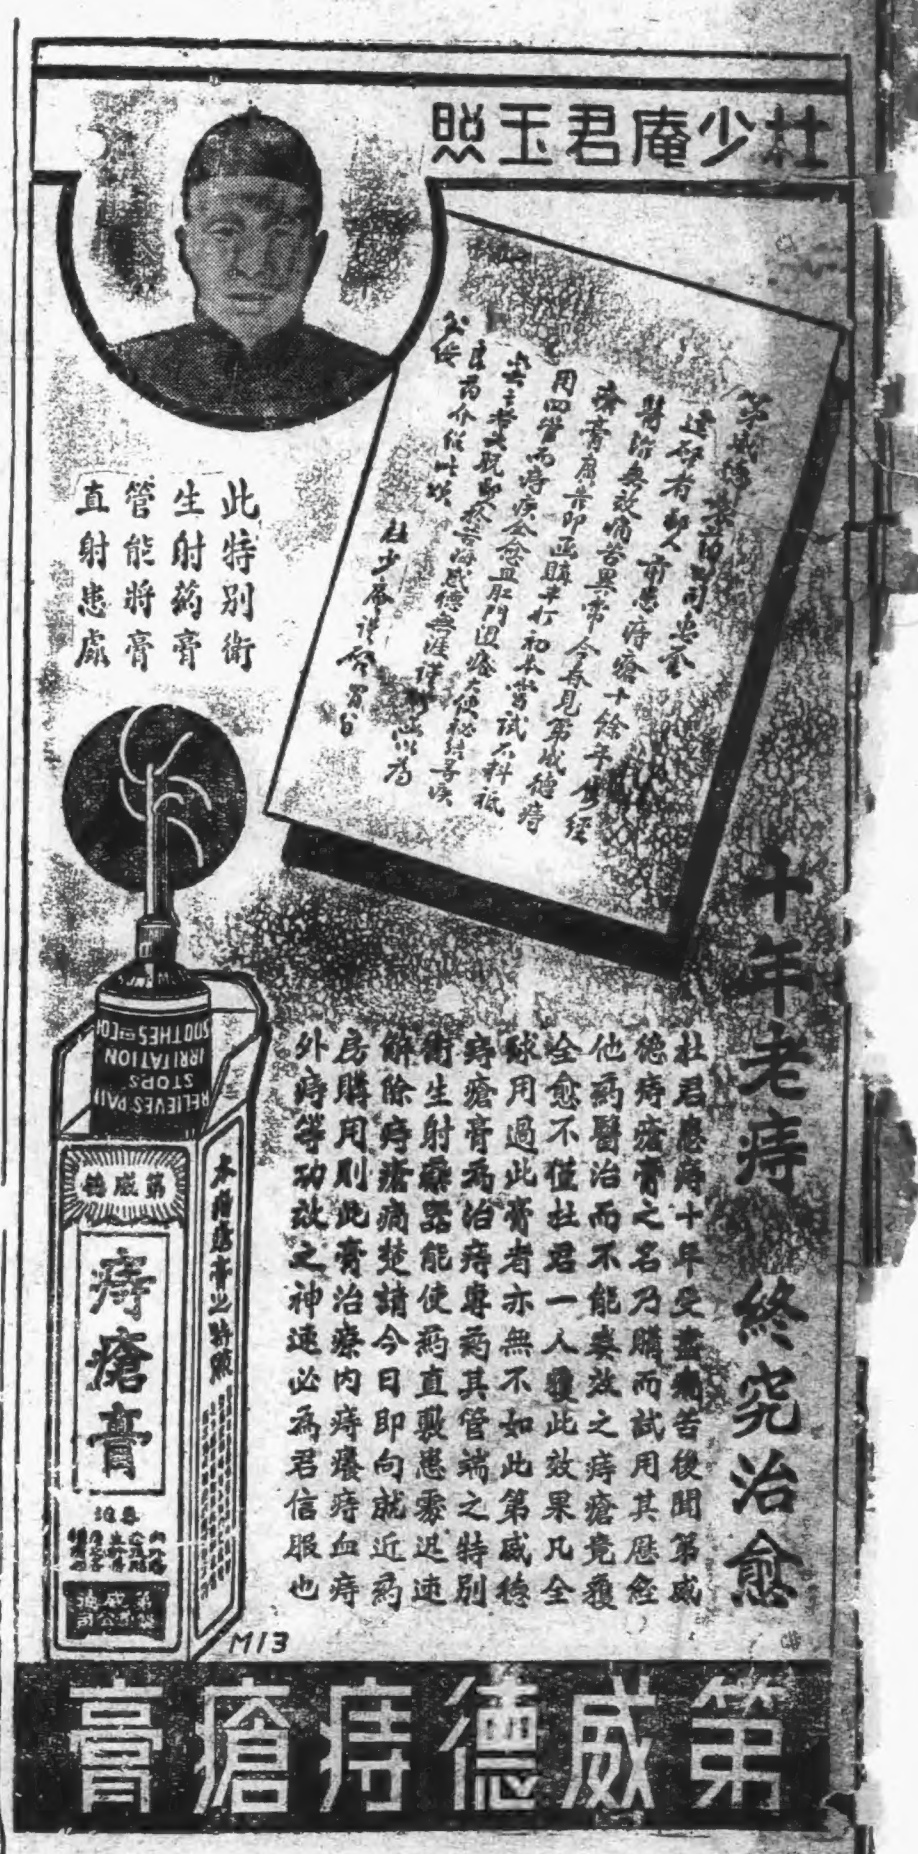 杜少庵君玉照
第威德製藥公司出產
逕啟者鄙人前患痔瘡十餘年屢經
醫治無效痛苦異常今春見第威德痔
瘡膏廣告即函購半打初本嘗試不料祇
用四管而痔疾全愈且肛門邊瘡大便秘結等疾
良藥介紹此頌
公綏
杜少庵謹啓
此特別衛
生射葯膏
管能將膏
直射患處
十年老痔 終究治愈
杜君患痔十年受盡痛苦後聞第威
德痔瘡膏之名乃購而試用其歷經
他葯醫治而不能奏效之痔瘡竟獲
全愈不僅杜君一人獲此效果凡全
球用過此膏者亦無不如此第威德
痔瘡膏為治痔專葯其管端之特別
衛生射藥器能使葯直敷患處迅速
解除痔瘡痛楚請今日即向就近葯
房購用則此膏治療內痔癢痔血痔
外痔等功效之神速必為君信服也
RELIEVES PAIN
STOPS
IRRITATION
SOOTHES
第威德
痔瘡膏
本痔瘡膏之特點
第威德
製藥公司
M13
第威德痔瘡膏